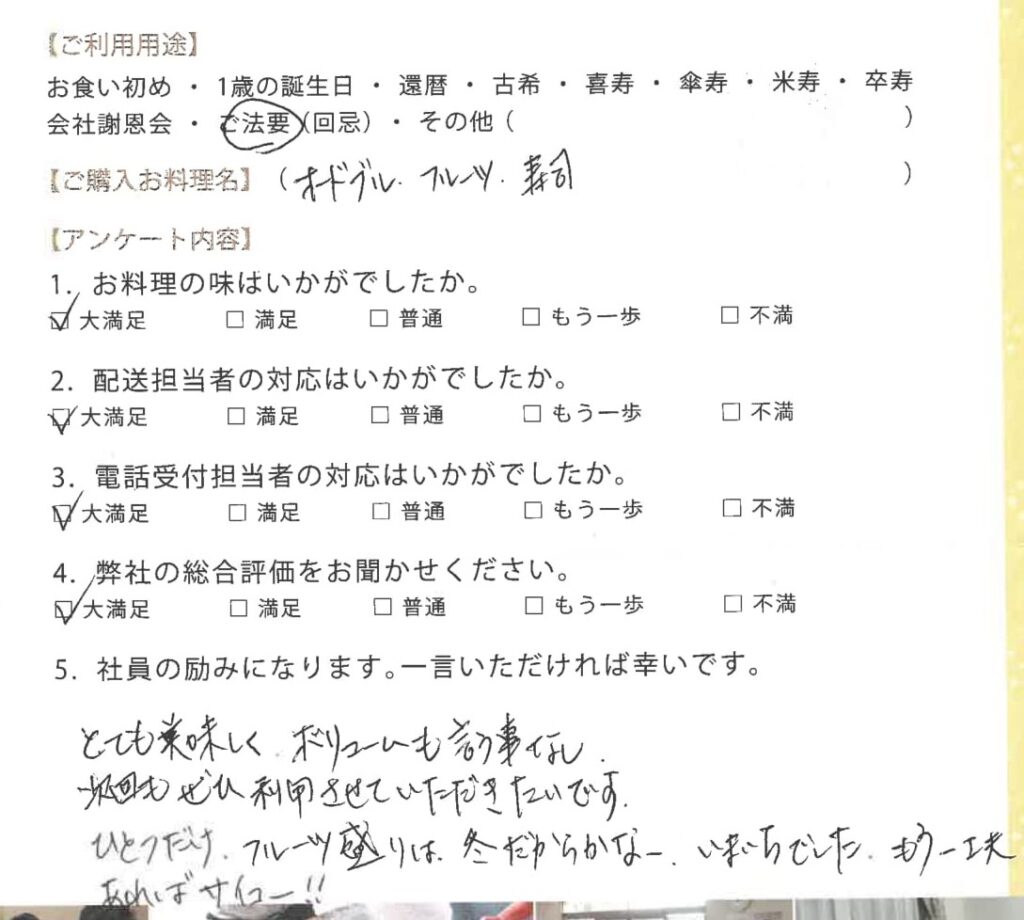 【ご利用用途】
お食い初め ・ 1歳の誕生日 ・ 還暦 ・ 古希 ・ 喜寿 ・ 傘寿 ・ 米寿 ・ 卒寿
会社謝恩会 ・ ご法要（回忌）・ その他（ ）
【ご購入お料理名】（オードブル. フルーツ. 寿司 ）
【アンケート内容】
1. お料理の味はいかがでしたか。
☑ 大満足 □ 満足 □ 普通 □ もう一歩 □ 不満
2. 配送担当者の対応はいかがでしたか。
☑ 大満足 □ 満足 □ 普通 □ もう一歩 □ 不満
3. 電話受付担当者の対応はいかがでしたか。
☑ 大満足 □ 満足 □ 普通 □ もう一歩 □ 不満
4. 弊社の総合評価をお聞かせください。
☑ 大満足 □ 満足 □ 普通 □ もう一歩 □ 不満
5. 社員の励みになります。一言いただければ幸いです。
とても美味しく. ボリュームも言う事なし.
次回もぜひ利用させていただきたいです.
ひとつだけ. フルーツ盛りは. 冬だからかなー. いまいちでした. もう一工夫
あればサイコー!!